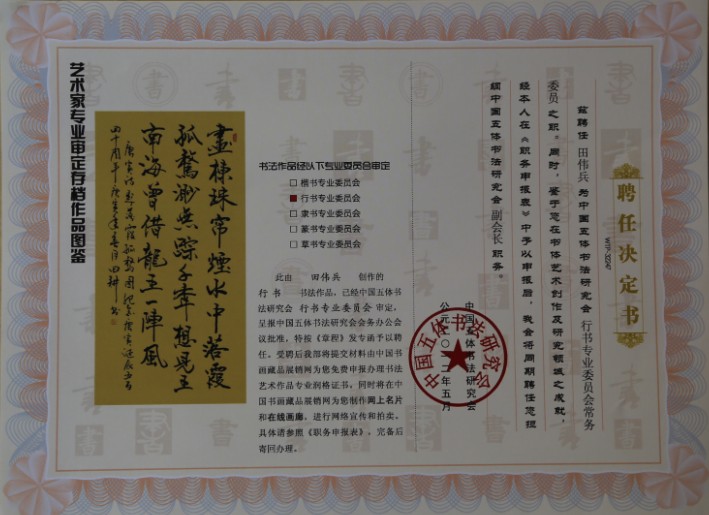 聘任决定书
兹聘任 田伟兵 为中国五体书法研究会 行书专业委员会常务
委员 之职。同时，鉴于您在书体艺术创作及研究领域之成就，
经本人在《职务申报表》中予以申报后，我会将同期聘任您担
纲中国五体书法研究会 副会长 职务。
中国五体书法研究会
公元二〇一二年五月
中国五体书法研究会
书法作品经以下专业委员会审定
□ 楷书专业委员会
■ 行书专业委员会
□ 隶书专业委员会
□ 篆书专业委员会
□ 草书专业委员会
此由 田伟兵 创作的
行书 书法作品，已经中国五体书
法研究会 行书专业委员会 审定，
呈报中国五体书法研究会会务办公会
议批准，特按《章程》发专函予以聘
任。受聘后我部将提交材料由中国书
画藏品展销网为您免费申报办理书法
艺术作品专业润格证书，同时将在中
国书画藏品展销网为您制作网上名片
和在线画廊，进行网络宣传和拍卖。
具体请参照《职务申报表》，完备后
寄回办理。
艺术家专业审定存档作品图鉴
畫棟珠帘煙水中落霞
孤鶩渺無踪千年想見王
南海曾借龍王一陣風